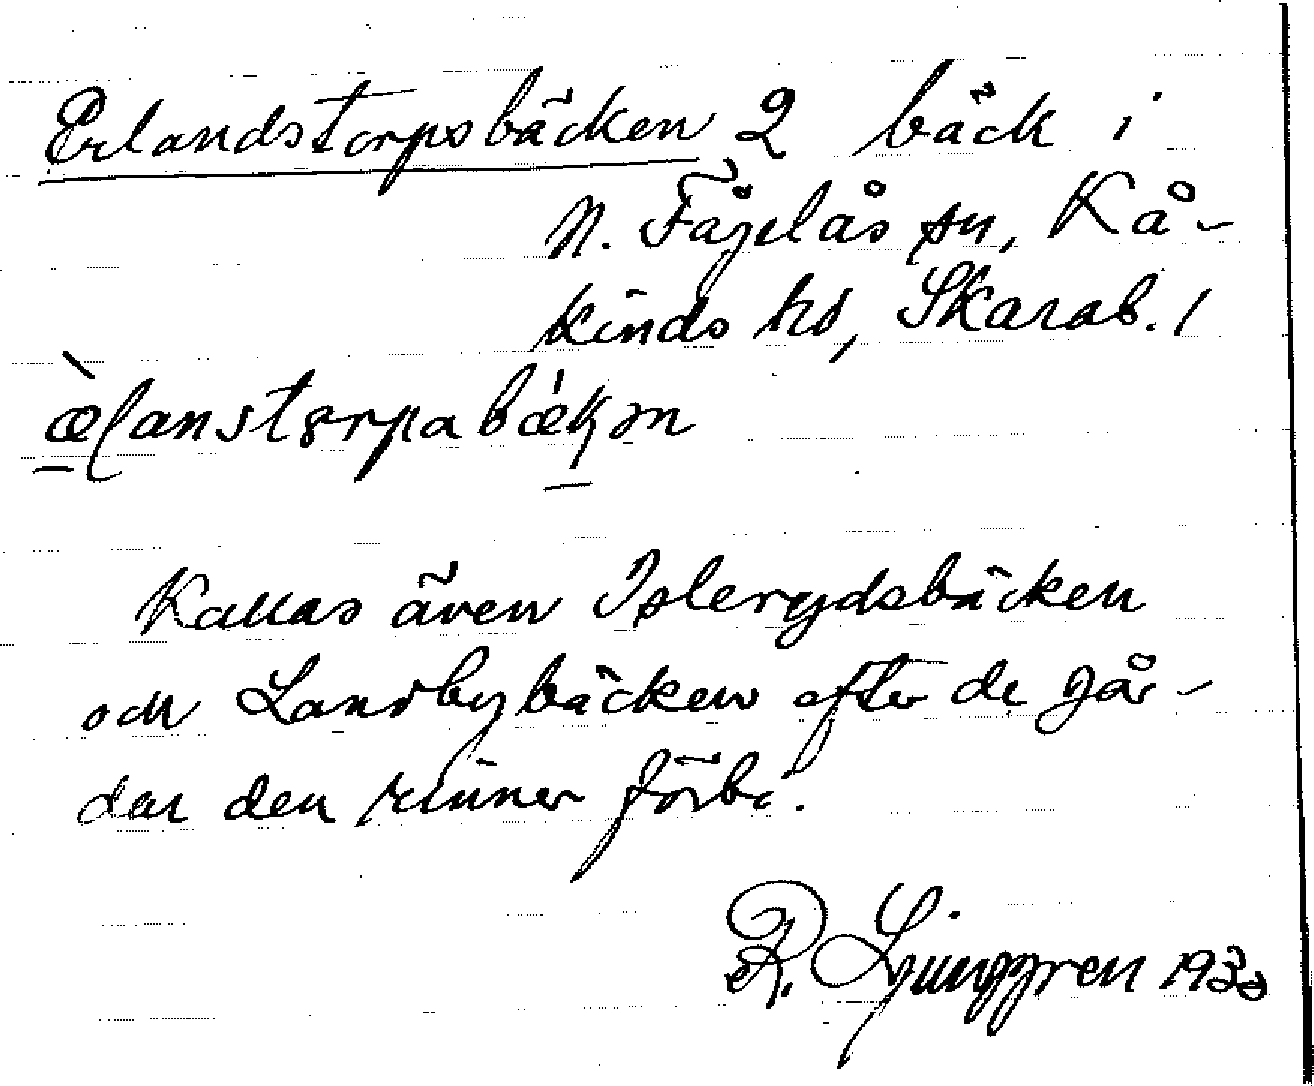 Erlandstorpsbäcken 2 bäck i
N. Fågelås sn, Kå-
kinds hd, Skarab. l
Kallas även Islerydsbäcken
och Landbybäcken efter de går-
dar den rinner förbi.
R. Ljunggren 1933